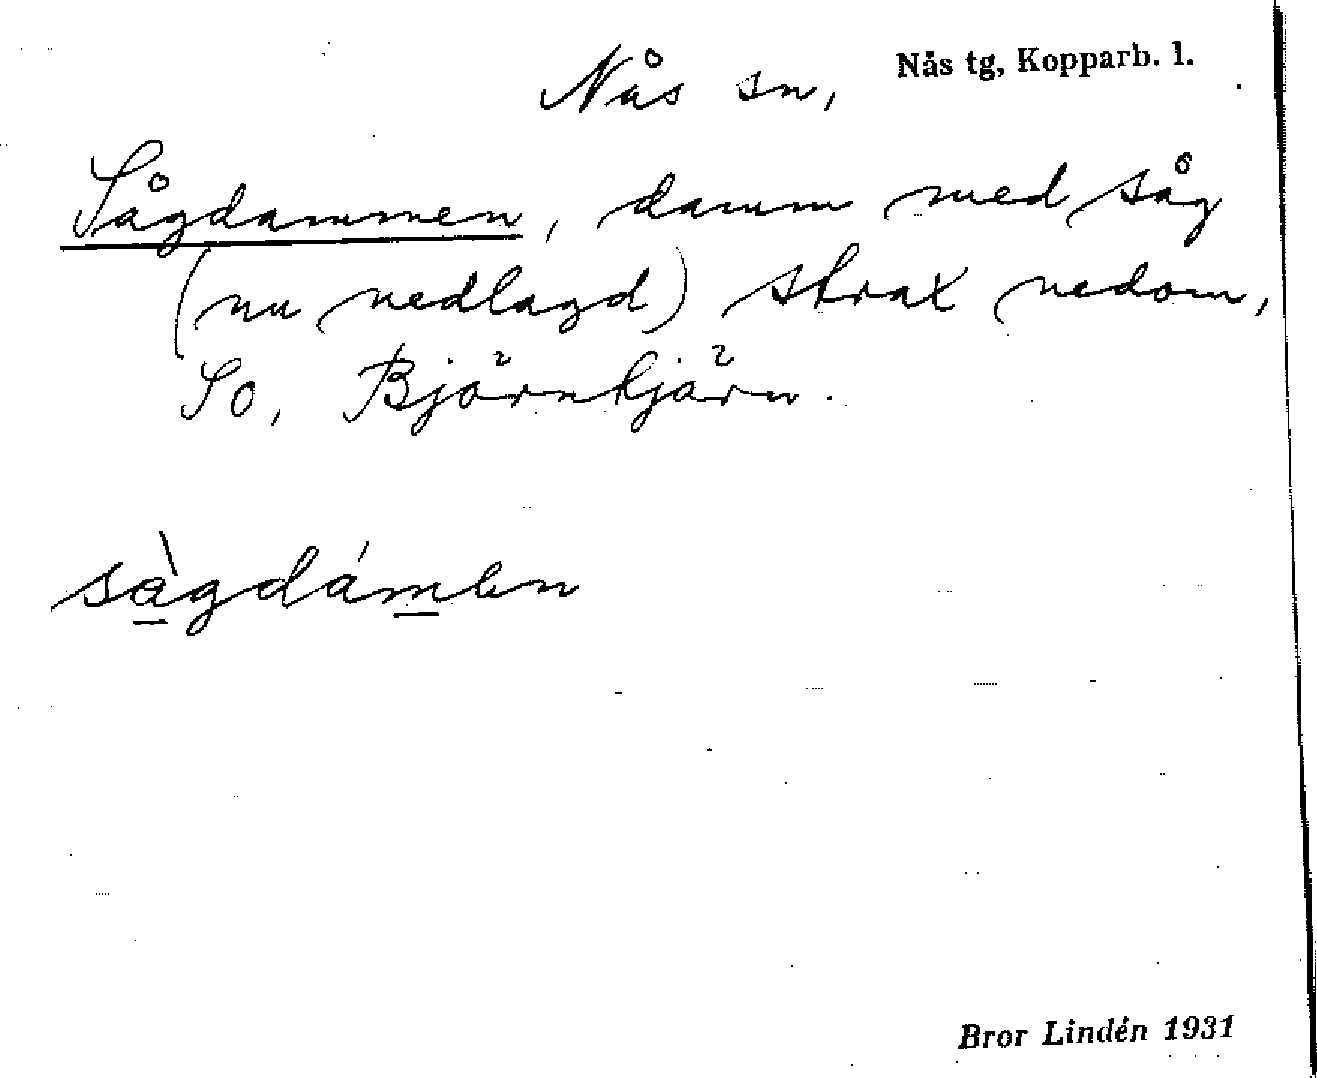 Nås sn, Nås tg, Kopparb. l.
Sågdammen, damm med såg
(nu nedlagd) strax nedom,
SO, Björntjärn.
sàgdámen
Bror Lindén 1931